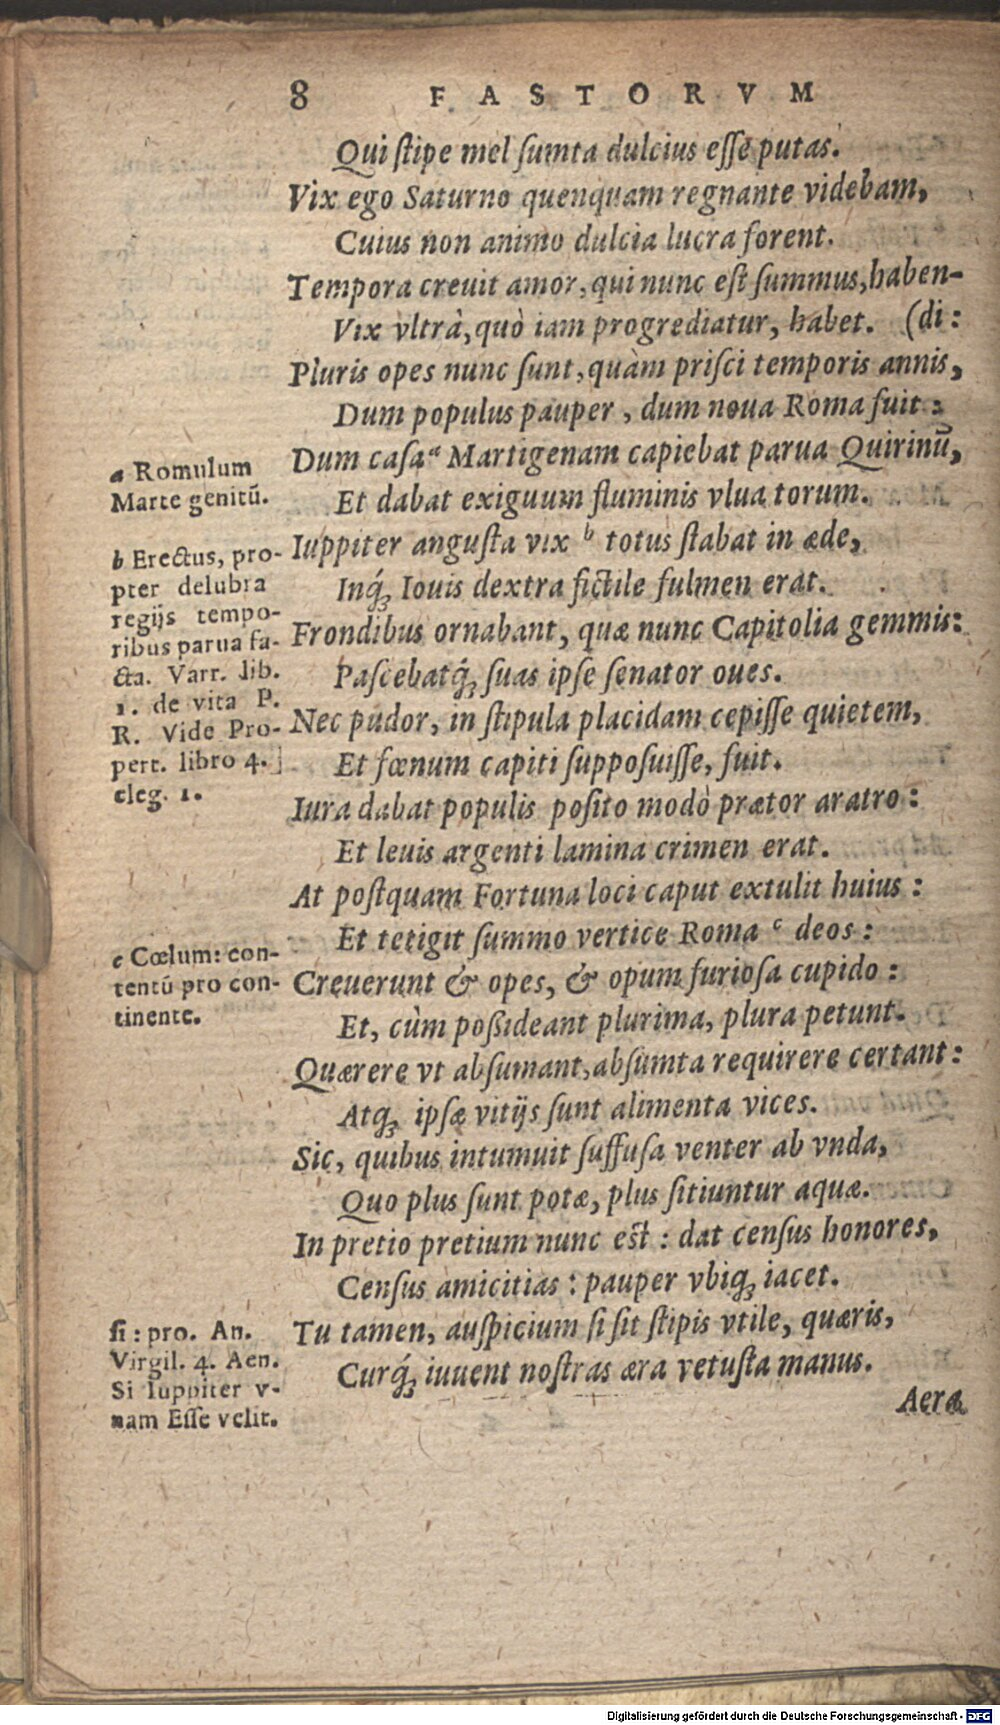 8 FASTORVM
Qui ſtipe mel ſumta dulcius eſſe putas.
Vix ego Saturno quenquam regnante videbam,
Cuius non animo dulcia lucra forent.
Tempora creuit amor, qui nunc eſt ſummus, haben-
Vix vltrà, quò iam progrediatur, habet. (di:
Pluris opes nunc ſunt, quàm priſci temporis annis,
Dum populus pauper, dum noua Roma fuit:
Dum caſa ᵃ Martigenam capiebat parua Quirinũ,
Et dabat exiguum fluminis vlua torum.
Iuppiter anguſta vix ᵇ totus ſtabat in æde,
Inq́ꝫ Iouis dextra fictile fulmen erat.
Frondibus ornabant, quæ nunc Capitolia gemmis:
Paſcebatq́ꝫ ſuas ipſe ſenator oues.
Nec pudor, in ſtipula placidam cepiſſe quietem,
Et fœnum capiti ſuppoſuiſſe, fuit.
Iura dabat populis poſito modò prætor aratro:
Et leuis argenti lamina crimen erat.
At poſtquam Fortuna loci caput extulit huius:
Et tetigit ſummo vertice Roma ᶜ deos:
Creuerunt & opes, & opum furioſa cupido:
Et, cùm poßideant plurima, plura petunt.
Quærere vt abſumant, abſumta requirere certant:
Atqꝫ ipſæ vitijs ſunt alimenta vices.
Sic, quibus intumuit ſuffuſa venter ab vnda,
Quo plus ſunt potæ, plus ſitiuntur aquæ.
In pretio pretium nunc eſt: dat cenſus honores,
Cenſus amicitias: pauper vbiqꝫ iacet.
Tu tamen, auſpicium ſi ſit ſtipis vtile, quæris,
Curq́ꝫ iuuent noſtras æra vetuſta manus.
Aera
a Romulum
Marte genitũ.
b Erectus, pro-
pter delubra
regijs tempo-
ribus parua fa-
cta. Varr. lib.
1. de vita P.
R. Vide Pro-
pert. libro 4.
eleg. 1.
c Cœlum: con-
tentũ pro con-
tinente.
ſi: pro. An.
Virgil. 4. Aen.
Si Iuppiter v-
nam Eſſe velit.
Digitalisierung gefördert durch die Deutsche Forschungsgemeinschaft - DFG